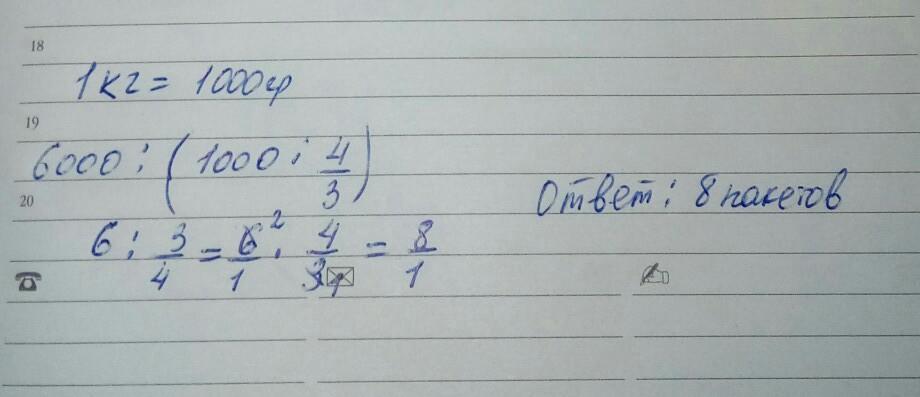 18
1 кг = 1000 гр
19
6000 : (1000 : 4/3)
20
Ответ : 8 пакетов
6 : 3/4 = 6/1 2 · 4/3 1 = 8/1